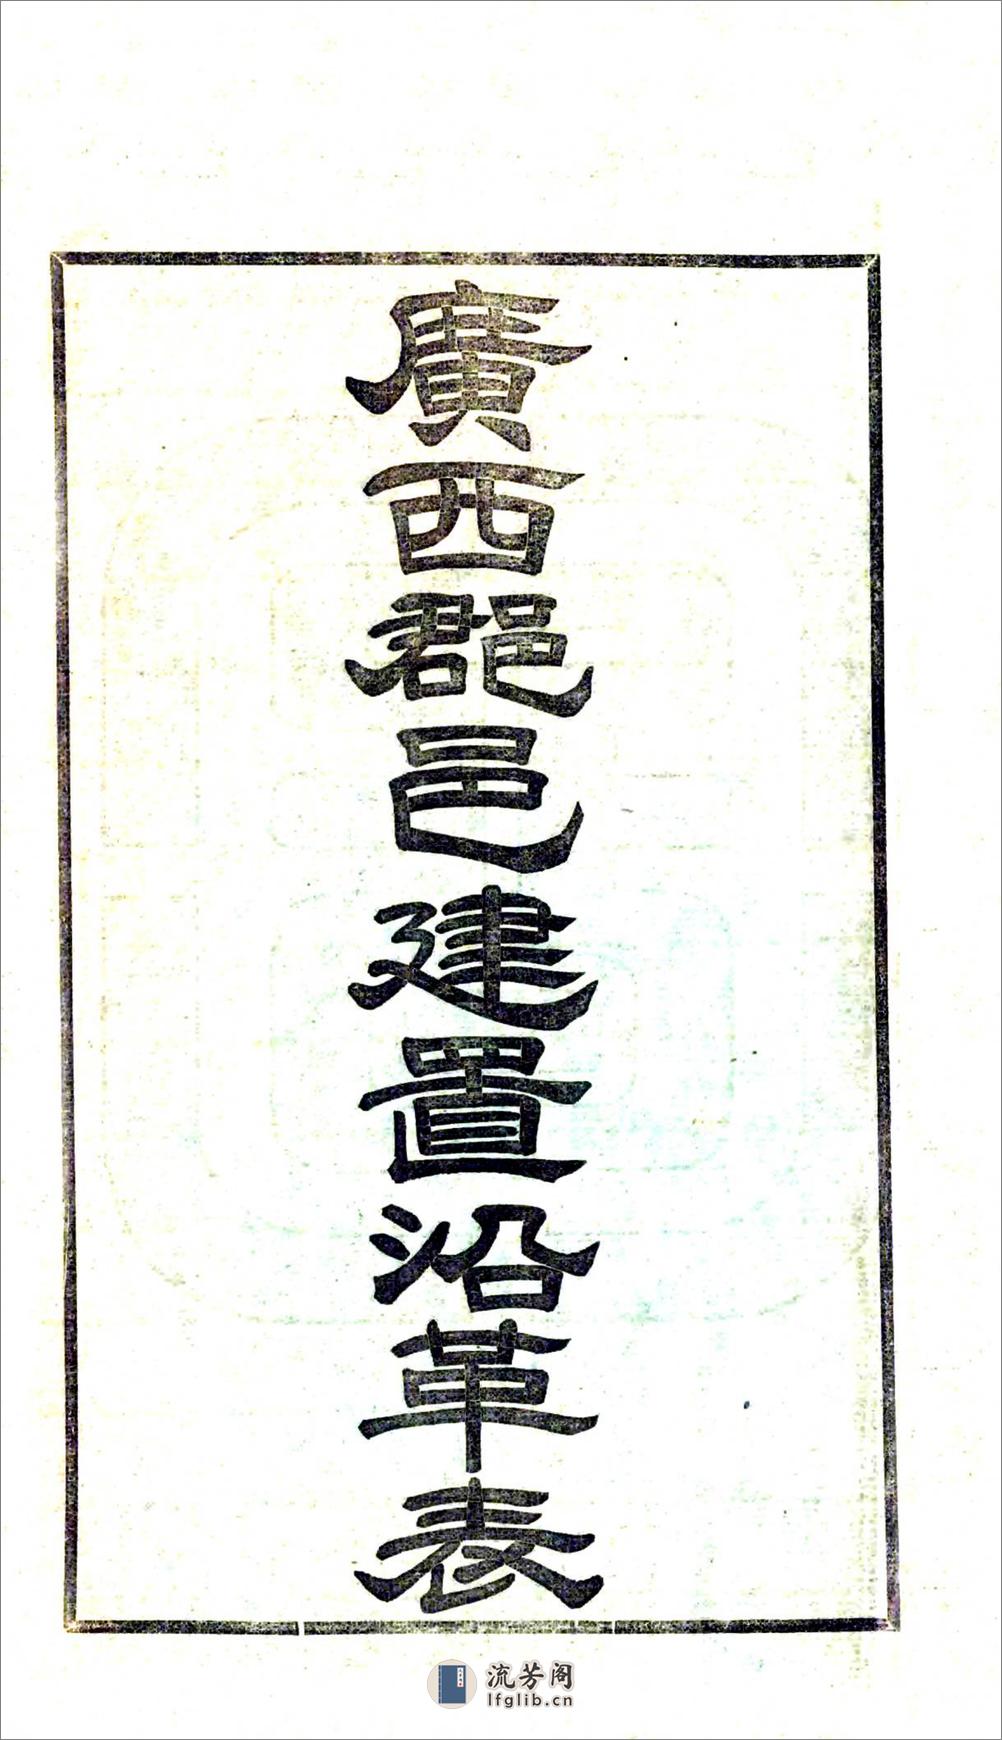 廣西郡邑建置沿革表
流芳阁
lfglib.cn